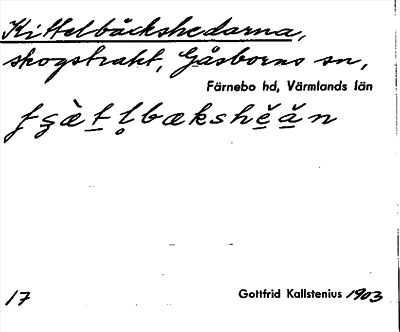 Kittelbäckshedarna,
skogstrakt, Gåsborns sn,
Färnebo hd, Värmlands län
17
Gottfrid Kallstenius 1903